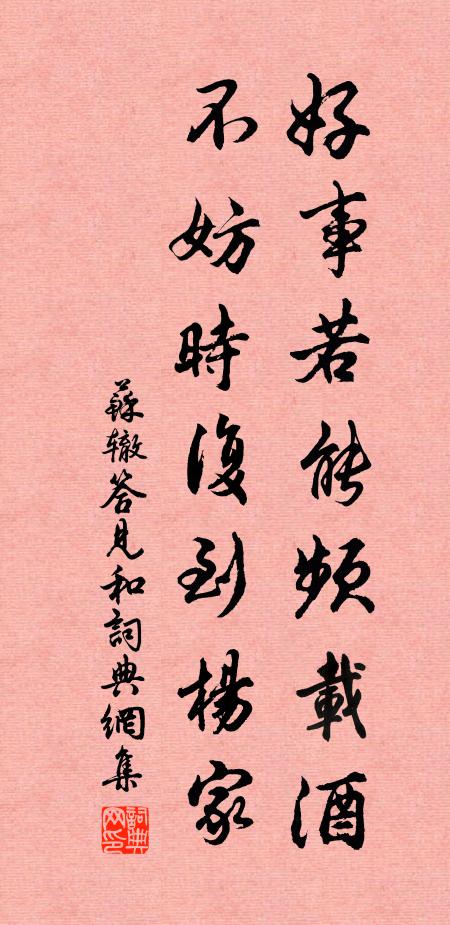 好事若能頻載酒
不妨時復到楊家
蘇辙答見和詞典網集
詞典网印